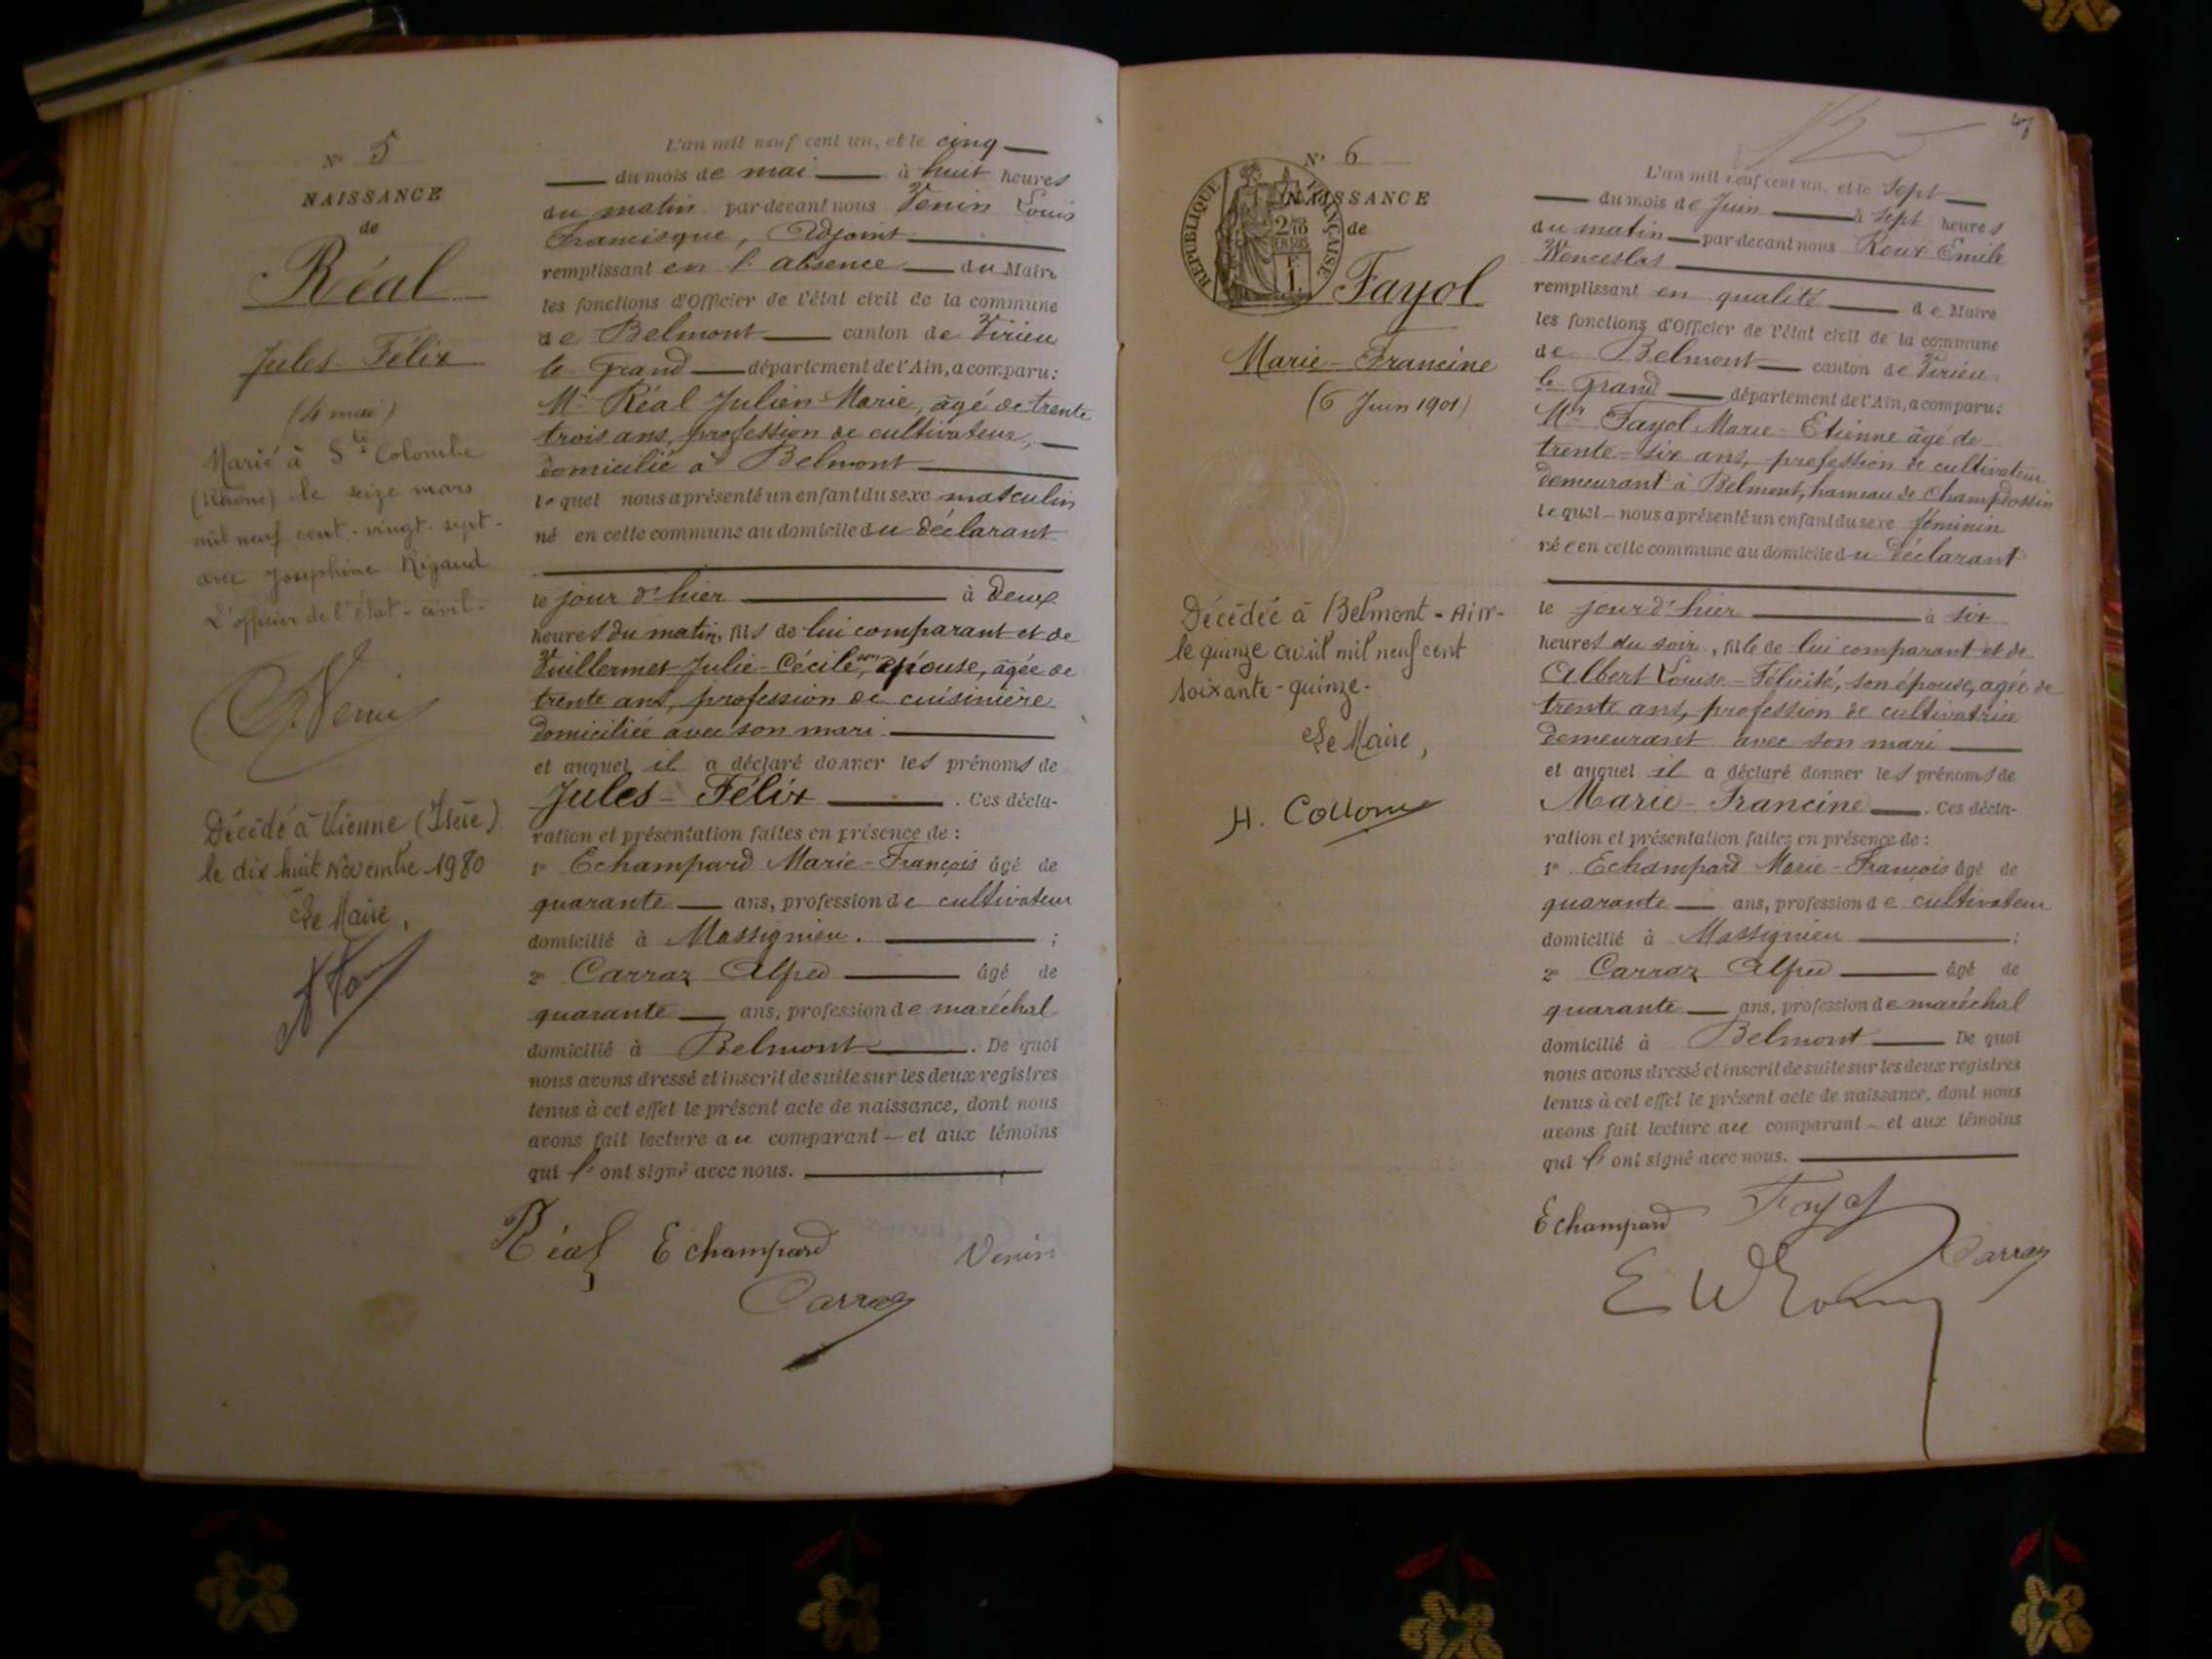 N° 5
NAISSANCE
de
Réal
Jules-Félix
(4 mai)
Marié à Ste Colombe
(Rhône) le seize mars
mil neuf cent-vingt-sept-
avec Joséphine Rigaud
L'officier de l'état-civil-
Décédé à Vienne (Isère)
le dix huit Novembre 1980
Le Maire,
L'an mil neuf cent un, et le cinq
du mois de mai à huit heures
du matin par-devant nous Venin Louis
Francisque, Adjoint
remplissant en l'absence du Maire
les fonctions d'Officier de l'état civil de la commune
de Belmont canton de Virieu
le Grand département de l'Ain, a comparu:
Mr Réal Julien-Marie, âgé de trente
trois ans, profession de cultivateur,
domicilié à Belmont
lequel nous a présenté un enfant du sexe masculin
né en cette commune au domicile du déclarant
le jour d'hier à deux
heures du matin, fils de lui comparant et de
Vuillermet Julie-Cécile, son épouse, âgée de
trente ans, profession de cuisinière
domiciliée avec son mari
et auquel il a déclaré donner les prénoms de
Jules-Félix . Ces décla-
ration et présentation faites en présence de :
1° Echampard Marie-François âgé de
quarante ans, profession de cultivateur
domicilié à Massignieu. ;
2° Carraz Alfred âgé de
quarante ans, profession de maréchal
domicilié à Belmont . De quoi
nous avons dressé et inscrit de suite sur les deux registres
tenus à cet effet le présent acte de naissance, dont nous
avons fait lecture au comparant — et aux témoins
qui l'ont signé avec nous.
Réal Echampard Venin
Carraz
N° 6
NAISSANCE
de
RÉPUBLIQUE FRANÇAISE
Fayol
Marie-Francine
(6 Juin 1901)
Décédée à Belmont-Ain-
le quinze avril mil neuf cent
soixante-quinze.
Le Maire,
L'an mil neuf cent un, et le Sept
du mois de Juin à sept heures
du matin par-devant nous Roux Emile
Wenceslas
remplissant en qualité de Maire
les fonctions d'Officier de l'état civil de la commune
de Belmont canton de Virieu-
le Grand département de l'Ain, a comparu:
Mr Fayol Marie-Etienne âgé de
trente-six ans, profession de cultivateur
demeurant à Belmont, hameau de Champdossin
lequel nous a présenté un enfant du sexe féminin
née en cette commune au domicile du déclarant
le jour d'hier à six
heures du soir, fille de lui comparant et de
Albert Louise-Félicité, son épouse, agée de
trente ans, profession de cultivatrice
demeurant avec son mari
et auquel il a déclaré donner les prénoms de
Marie-Francine . Ces décla-
ration et présentation faites en présence de :
1° Echampard Marie-François âgé de
quarante ans, profession de cultivateur
domicilié à Massignieu ;
2° Carraz Alfred âgé de
quarante ans, profession de maréchal
domicilié à Belmont De quoi
nous avons dressé et inscrit de suite sur les deux registres
tenus à cet effet le présent acte de naissance, dont nous
avons fait lecture au comparant — et aux témoins
qui l'ont signé avec nous.
Echampard Fayol
Carraz